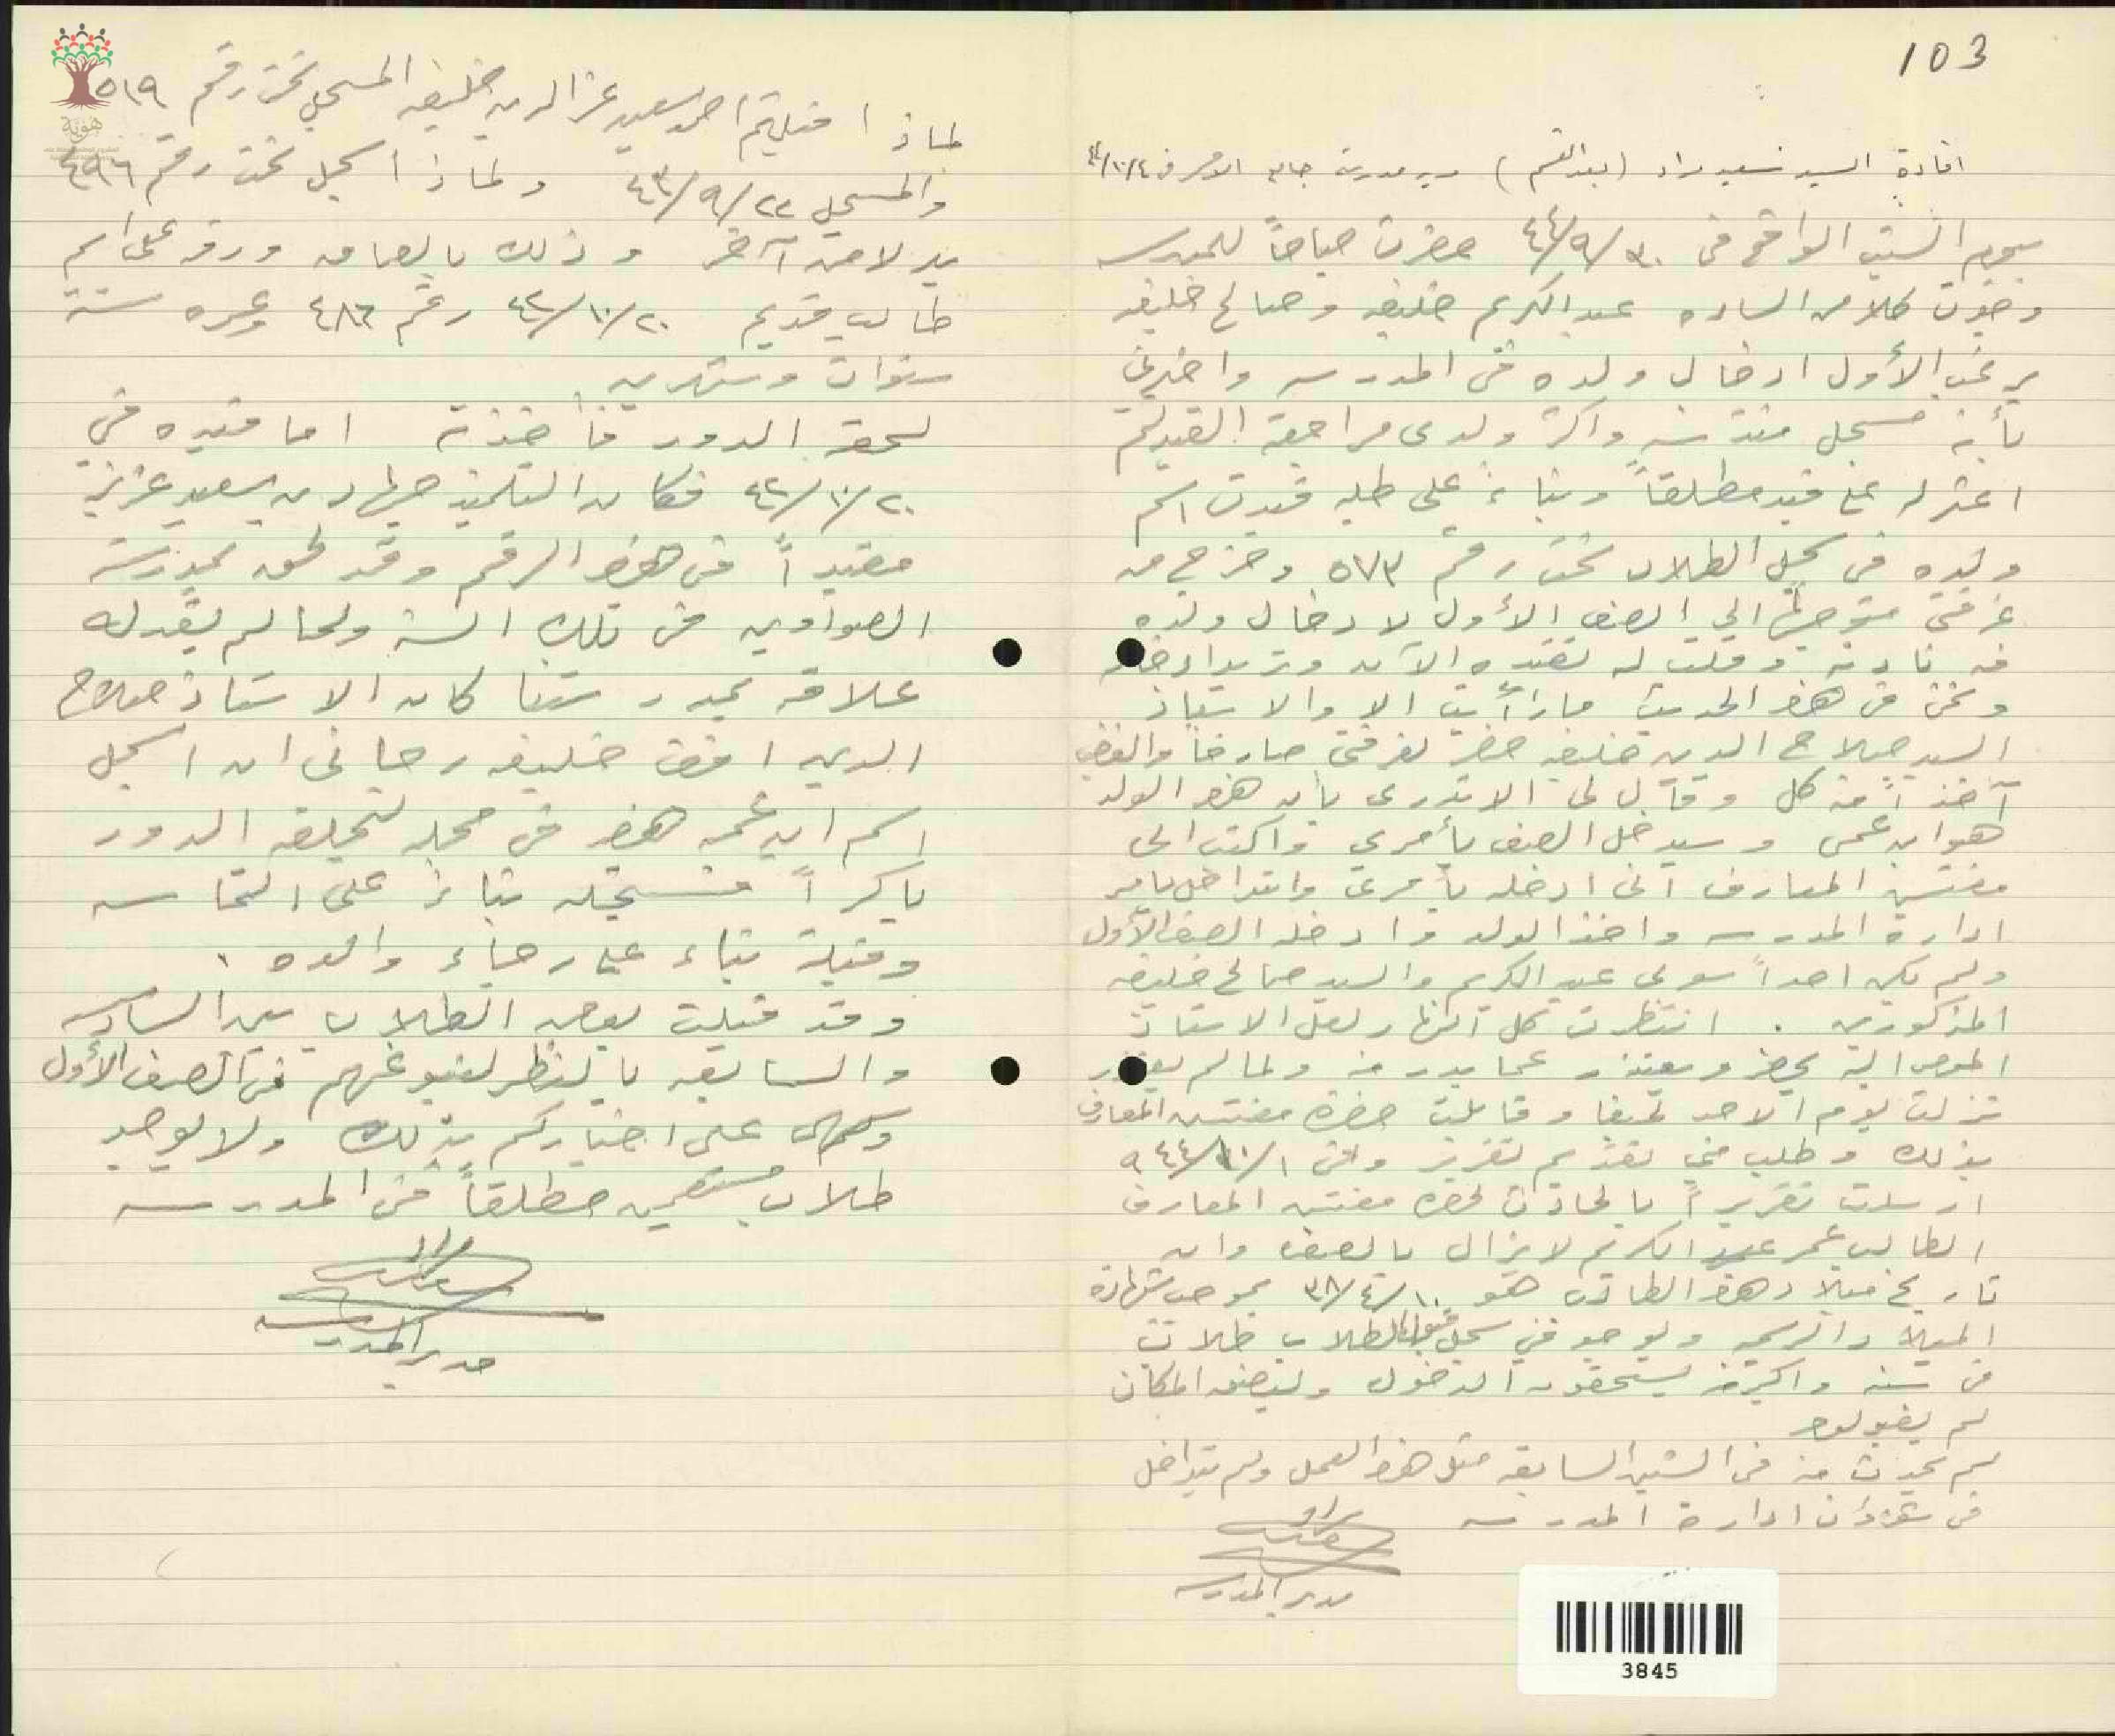 103
افادة السيد سعيد مراد (بعد القسم) مدير مدرسة جامع الاحمر في ٤/١٠/٤٤
يوم السبت الواقع في ٣٠/٩/٤٤ حضرت صباحاً للمدرسه
كلا من الساده عبد الكريم خليفه وصالح خليفه
يرغب الأول ادخال ولده في المدرسه واخبرني
بأنه مسجل منذ سنه واكثر ولدى مراجعة القيد لم
اعثر له على قيد مطلقاً وبناءً على طلبه قيدت اسم
ولده في سجل الطلاب تحت رقم ٥٧٣ وخرج من
غرفتي متوجهاً الى الصف الأول لادخال ولده
فناديته وقلت له تقيده الآن وتريد ادخاله
ونحن في هذا الحديث ما رأيت الا والاستاذ
السيد صلاح الدين خليفه حضر لغرفتي صارخاً والغضب
آخذاً منه كل وقال لي الا تدري بان هذا الولد
هو ابن عمي وسيدخل الصف بأمري واكتب الى
مفتش المعارف انى ادخله بأمري واتداخل بامر
ادارة المدرسه واخذ الولد وادخله الصف الأول
ولم يكن احداً سوى عبد الكريم والسيد صالح خليفه
المذكورين . انتظرت كل النهار لعل الاستاذ
الموصى اليه يحضر ويعتذر عما بدر منه ولما لم يعتذر
نزلت يوم الاحد لحيفا وقابلت حضرة مفتش المعارف
بذلك وطلب مني تقديم تقرير وفي ١/١٠/٩٤٤
ارسلت تقريراً بالحادث لحضرة مفتش المعارف
الطالب عمر عبد الكريم لا يزال بالصف وان
تاريخ ميلاد هذا الطالب هو ١٠/٤/٣٨ بموجب شهادة
الميلاد الرسميه ويوجد في سجل قبول الطلاب طلاب
في سنه واكبر منه يستحقون الدخول ولضيق المكان
لم يقبلوا
لم يحدث منه في السنين السابقه مثل هذا العمل ولم يتداخل
في شؤون ادارة المدرسه
مدير المدرسه
3845
لماذا قبلتم احمد سعيد عز الدين خليفه المسجل تحت رقم ٥١٩
والمسجل ٢٢/٩/٤٣ ولماذا سجل تحت رقم ٤٩٦
بدلا من آخر وذلك بالصاق ورقه على اسم
طالب قديم ٢٠/١٠/٤٢ رقم ٤٨٦ وعمره ستة
سنوات وشهرين
لحق الدور فأخذته اما قيده في
٢٠/١٠/٤٢ فكان التلميذ جهاد سعيد عزيز
مقيداً في هذا الرقم وقد لحق بمدرسة
في تلك السنه ولما لم يعد له
علاقه بمدرستنا كان الاستاذ صلاح
الدين افندي خليفه رجاني ان اسجل
اسم ابن عمه هذا في محله ليلحقه الدور
باكراً فسجلته بناءً على التماسه
وقبلته بناء على رجاء والده .
وقد قبلت بعض الطلاب بين السادسه
والسابعه بالنظر لنبوغهم في الصف الأول
على اخباركم بذلك ولا يوجد
طلاب مستمعين مطلقاً في المدرسه
مدير المدرسه
هوية